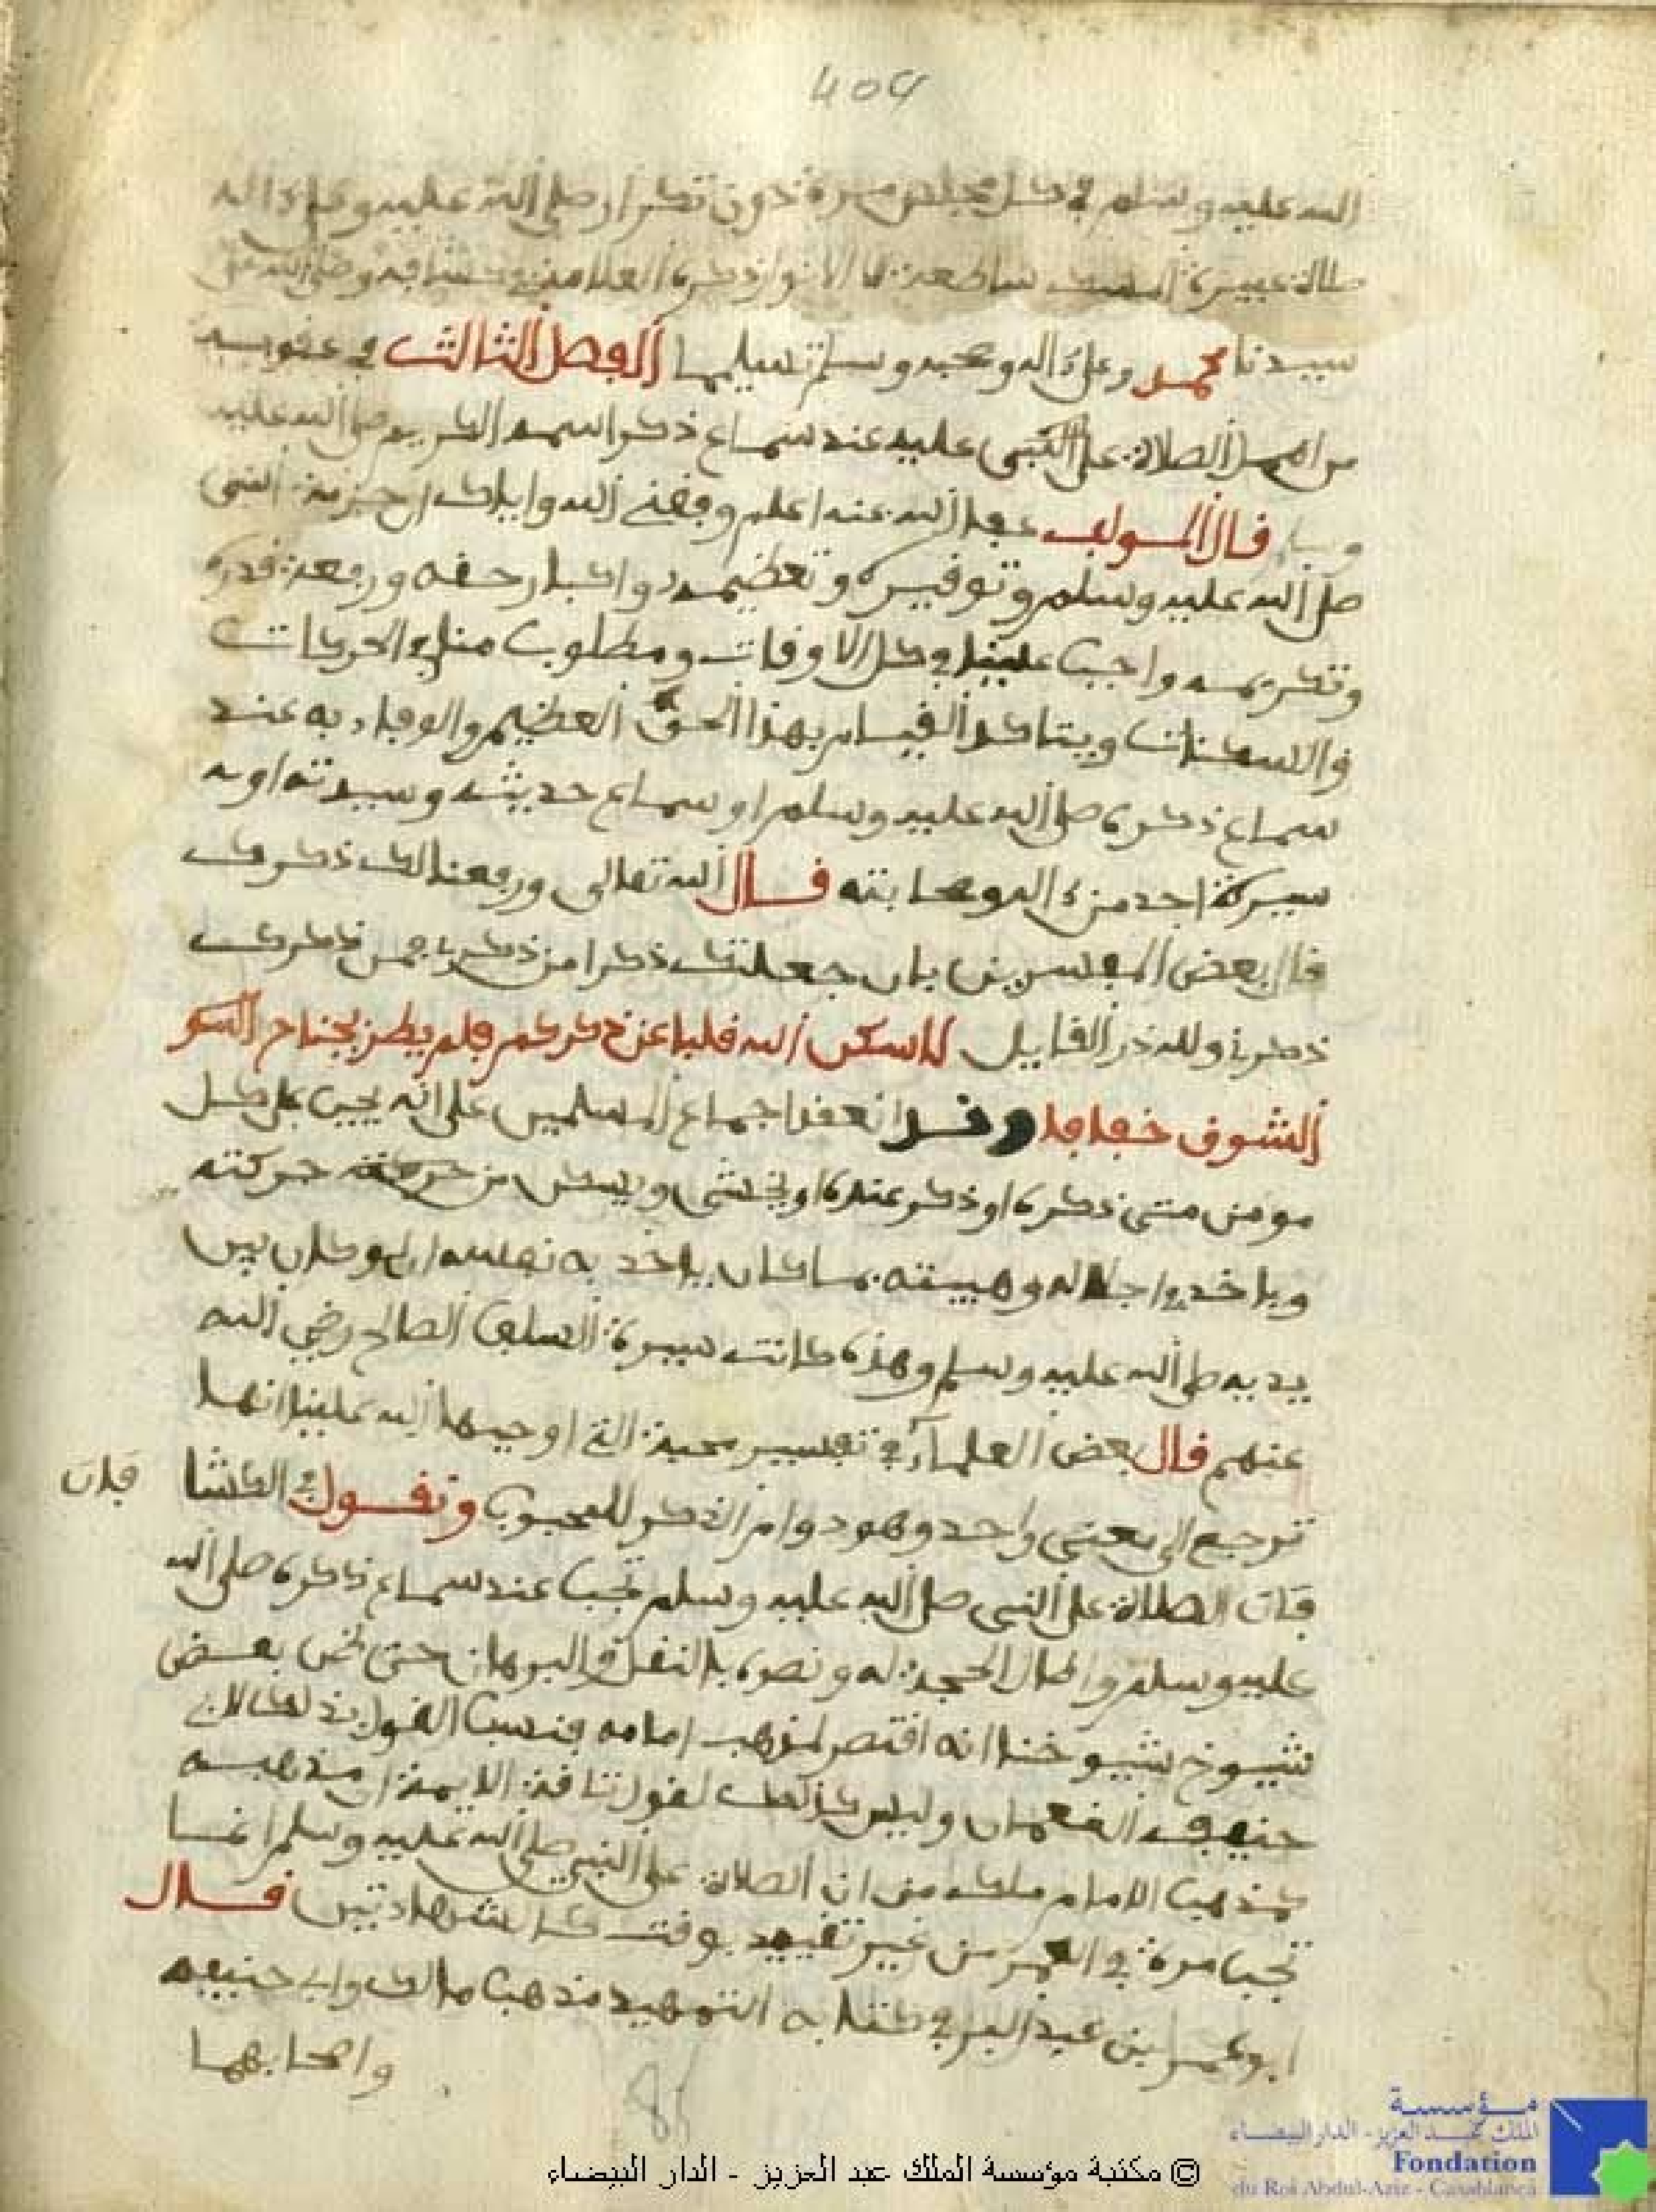 409
الله عليه وسلم في كل مجلس مرة دون تكرار صلى الله عليه وعلى ءاله
صلاة عبيرة المسك ساطعة الانوار ذكره العلامة في كشافه وصلى الله على
سيدنا محمد وعلى ءاله وصحبه وسلم تسليما الفصل الثالث في عقوبة
من اهمل الصلاة على النبي عليه عند سماع ذكر اسمه الكريم صلى الله عليه
قال المولف عفا الله عنه اعلم وفقني الله واياك ان حرمة النبي
صلى الله عليه وسلم وتوفيره وتعظيمه واكبار حقه ورفعة قدره
وتكريمه واجب علينا في كل الاوقات ومطلوب منا في الحركات
والسكنات ويتاكد القيام بهذا الحق العظيم والوفاء به عند
سماع ذكره صلى الله عليه وسلم او سماع حديثه وسيرته او
سيرة احد من ءاله وصحابته قال الله تعالى ورفعنا لك ذكرك
قال بعض المفسرين بان جعلتك ذكرا من ذكري فمن ذكرك
ذكرني ولله در القايل لما سكن الله قلبا عن ذكركم فلم يطر بجناح
الشوق خفاقا وقد انعقد اجماع المسلمين على انه يجب على كل
مومن متى ذكره او ذكر عنده ان يخشى ويسكن من حركته
وياخذ في اجلاله وهيبته بما كان ياخذ به نفسه ان لو كان بين
يديه صلى الله عليه وسلم وهذه كانت سيرة السلف الصالح رضي الله
عنهم قال بعض العلماء في تفسير محبة التي اوجبها الله علينا انها
ترجع الى معنى واحد وهو دوام الذكر للمحبوب وتقول في الكشا
فان
فان الصلاة على النبي صلى الله عليه وسلم تجب عند سماع ذكره صلى الله
عليه وسلم واطال الحجة له ونصره بالنقل والبرهان حتى ظن بعض
شيوخ شيوخنا انه اقتصر لمذهب امامه فنسب القول بذلك لابي
حنيفة النعمان وليس كذلك لقول ثناقة الايمة ان مذهبه
كمذهب الامام ملك من ان الصلاة على النبي صلى الله عليه وسلم انما
تجب مرة في العمر من غير تقييد بوقت كالشهادتين قال
ابو عمر ابن عبد البر في كتابه التمهيد مذهب مالك وابي حنيفة
واصحابهما
86
© مكتبة مؤسسة الملك عبد العزيز - الدار البيضاء
مؤسسة
الملك عبد العزيز - الدار البيضاء
Fondation
du Roi Abdul-Aziz - Casablanca